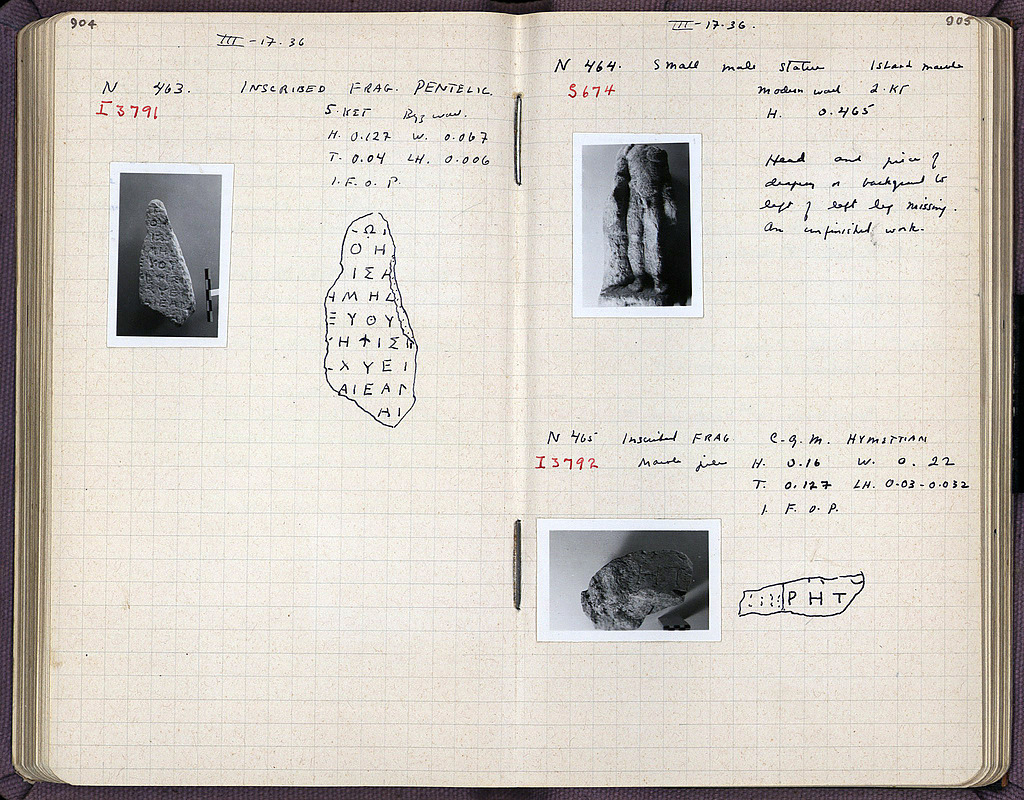 904
III-17.36
N 463. INSCRIBED FRAG. PENTELIC
I 3791
5·KET Byz wall.
H. 0.127 W. 0.067
T. 0.04 LH. 0.006
I. F. O. P.
-Ω,
Ο Η
Ι Σ Α
Η Μ Η Δ
Ξ Υ Θ Υ
Η Ψ Ι Σ Π
Χ Υ Ε Ι
Α Ι Ε Α Γ
Η Ι
905
III-17.36.
N 464. Small male statue Island marble
S 674
Modern wall 2·ΚΓ
H. 0.465
Head and piece of
drapery or background to
left of left leg missing.
An unfinished work.
N 465 Inscribed FRAG. C-G.M. HYMETTIAN
I 3792
Marble pile
H. 0.16 W. 0.22
T. 0.127 LH. 0.03-0.032
I. F. O. P.
Ρ Η Τ